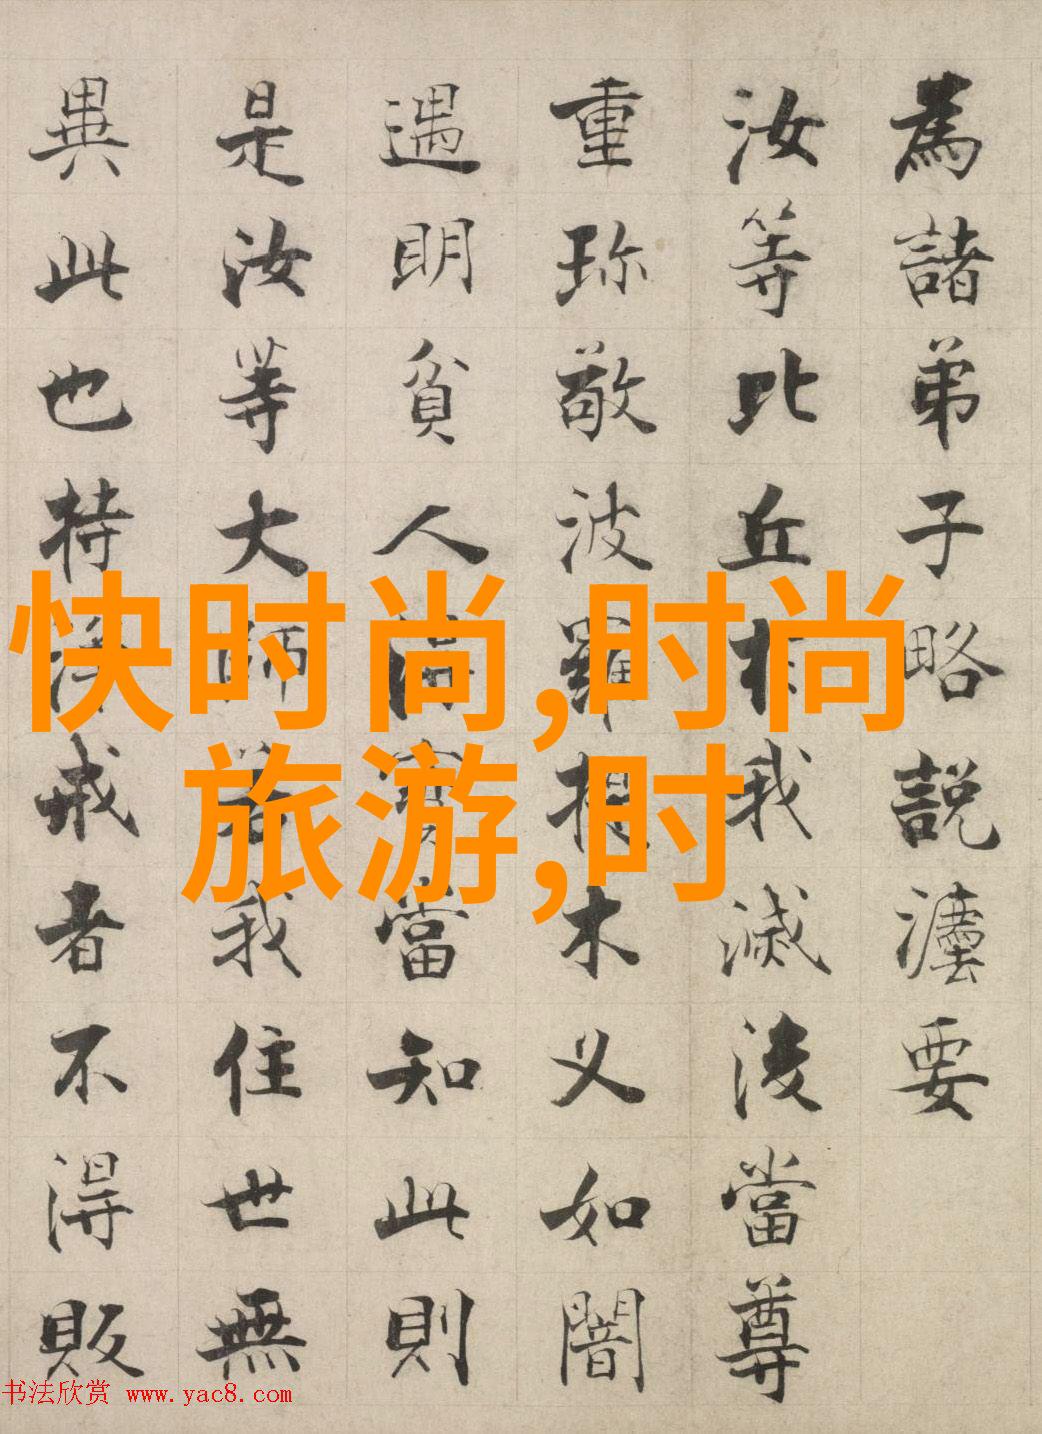 為諸弟子略説灋要
汝等比丘於我滅後當尊
重珎敬波羅提木叉如闇
遇明貧人得寶當知此則
是汝等大師若我住世無
異此也持淨戒者不得販
快时尚,时尚
旅游,时
书法欣赏 www.yac8.com